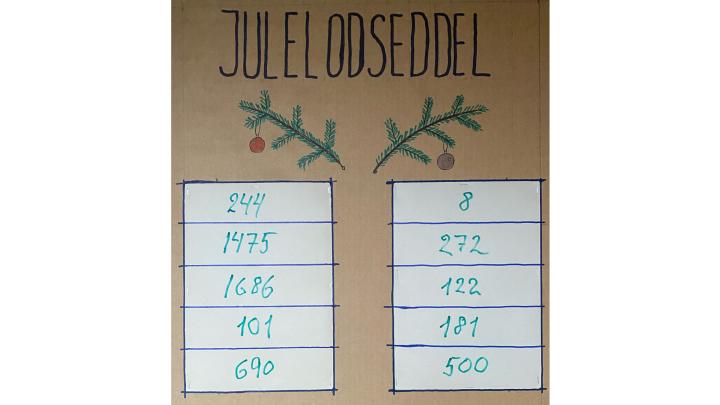 JULELODSEDDEL
244
1475
1686
101
690
8
272
122
181
500